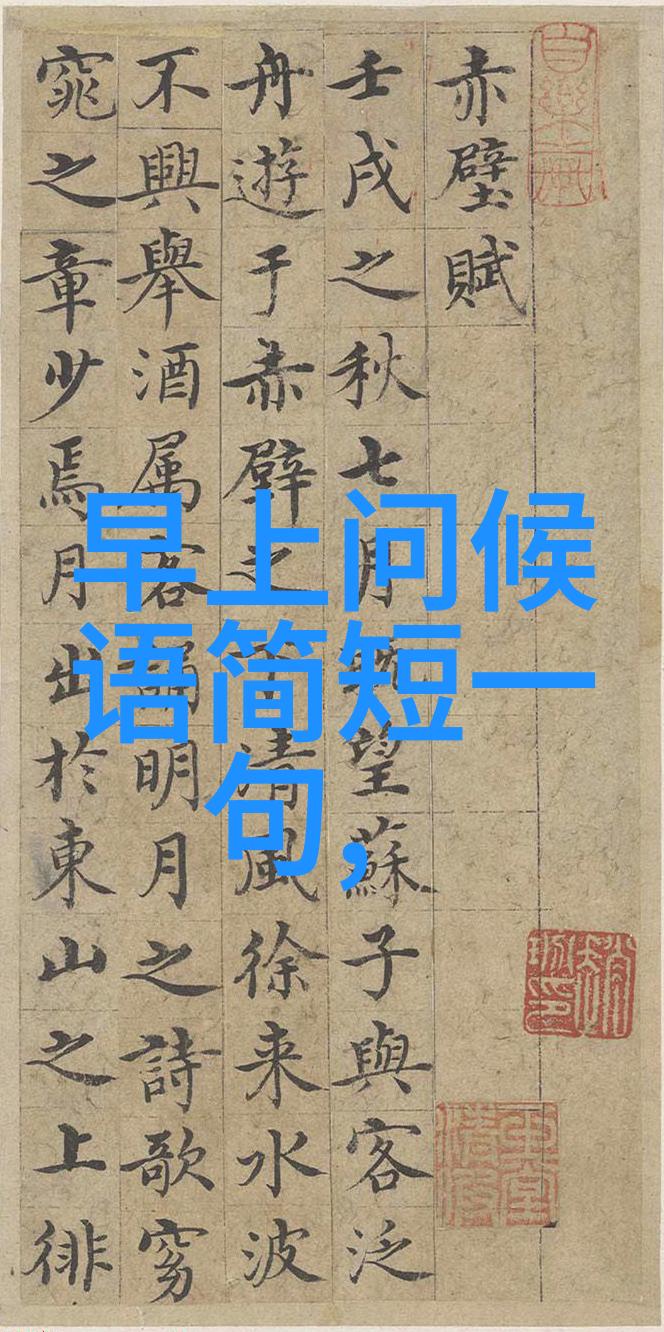 赤壁賦
壬戌之秋七月既望蘇子與客泛
舟遊于赤壁之下清風徐来水波
不興舉酒属客誦明月之詩歌窈
窕之章少焉月出於東山之上徘
早上问候
语简短一
句,